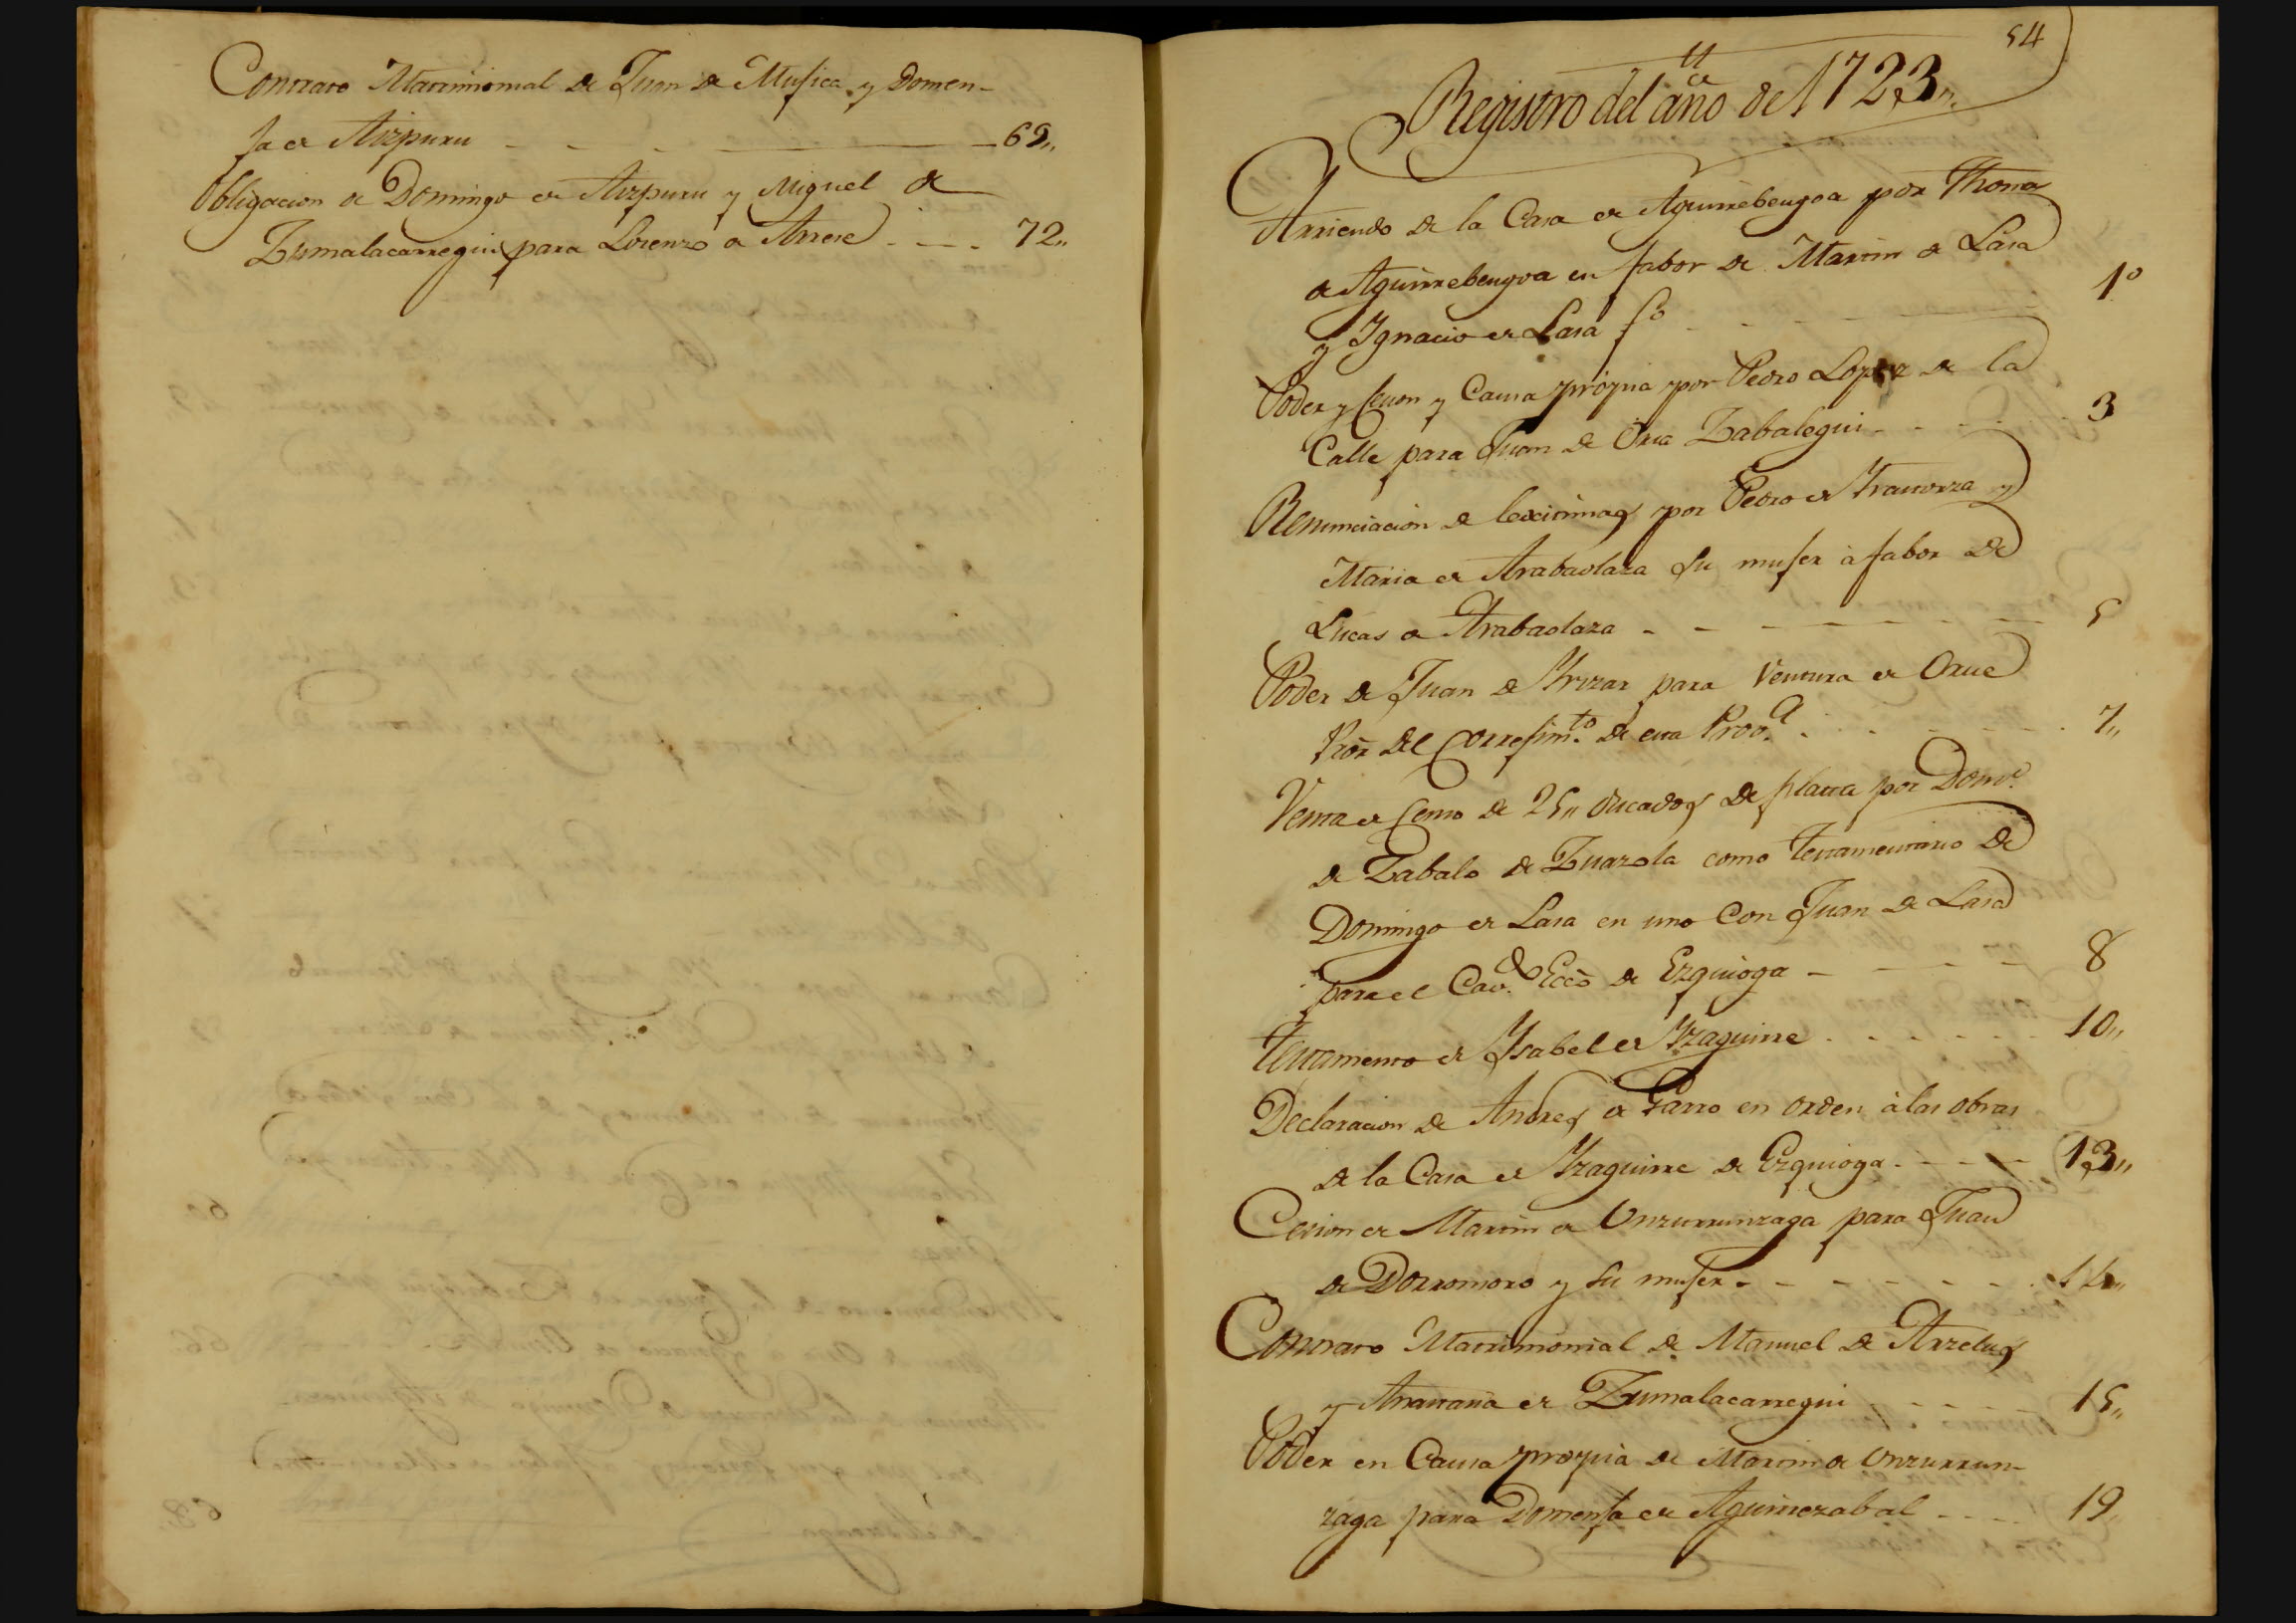 Contrato Matrimonial de Juan de Mujica y Domen-
ja de Aizpuru - - - - 69,,
Obligacion de Domingo de Aizpuru y Miguel de
Zumalacarregui para Lorenzo de Arrese - - - 72,,
54
Registro del año de 1723,,
Arriendo de la Casa de Aguirrebengoa por Thomas
de Aguirrebengoa en fabor de Martin de Lasa
y Ignacio de Lasa fo - - - - 1º
Poder y Cesion y Causa própria por Pedro Lopez de la
Calle para Juan de Oria Zabalegui - - - 3
Renunciacion de lexitimas por Pedro de Yraeta y
Maria de Arabaolaza su mujer à fabor de
Lucas de Arabaolaza - - - - - - - 5
Poder de Juan de Yrizar para Ventura de Orue
Pror del Correjimto. de esta Prova. - - - - 7,,
Venta de Censo de 25,, ducados de plata por Domo.
de Zabalo de Zuazola como testamentario de
Domingo de Lasa en uno Con Juan de Lasa
para el Cavdo. Ecco de Ezquioga - - - - 8
testamento de Ysabel de Yzaguirre - - - - - 10,,
Declaracion de Andres de Garro en orden à las obras
de la Casa de Yzaguirre de Ezquioga - - - - 13,,
Cesion de Martin de Unzurrunzaga para Juan
de Dorronsoro y su mujer - - - - - - 14,,
Contrato Matrimonial de Manuel de Arzelus
y Ana maria de Zumalacarregui - - - - 15,,
Poder en Causa própria de Martin de Unzurrun-
zaga para Domenja de Aguirrezabal - - - - 19,,